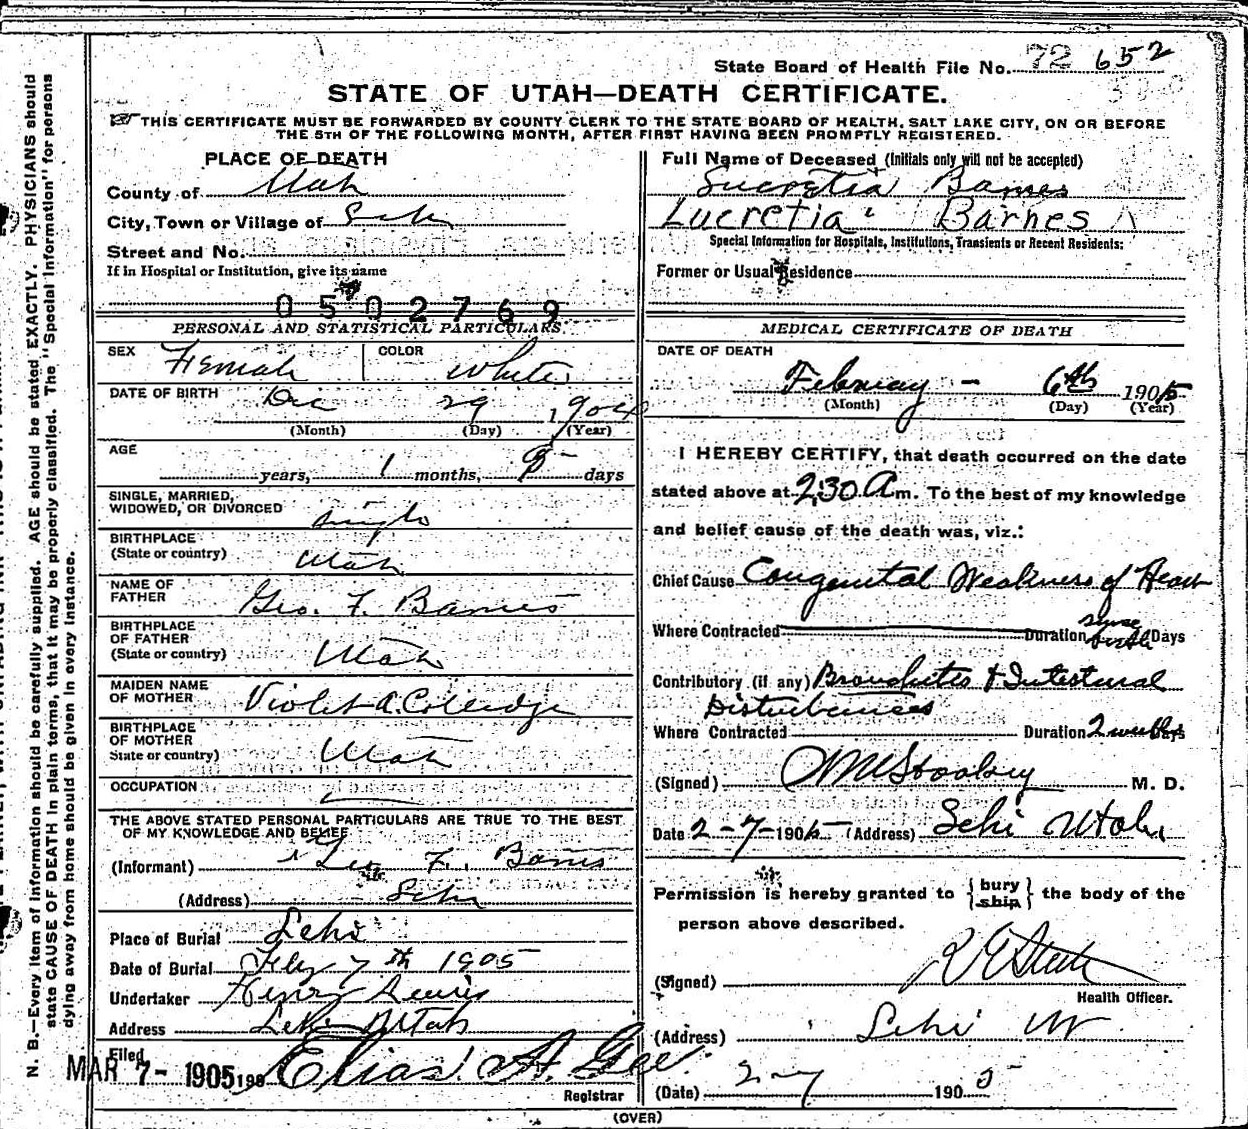 State Board of Health File No. 72 652
STATE OF UTAH—DEATH CERTIFICATE.
THIS CERTIFICATE MUST BE FORWARDED BY COUNTY CLERK TO THE STATE BOARD OF HEALTH, SALT LAKE CITY, ON OR BEFORE
THE 5TH OF THE FOLLOWING MONTH, AFTER FIRST HAVING BEEN PROMPTLY REGISTERED.
PLACE OF DEATH
County of Utah
City, Town or Village of Lehi
Street and No.
If in Hospital or Institution, give its name
0502769
PERSONAL AND STATISTICAL PARTICULARS.
SEX Female COLOR White
DATE OF BIRTH Dec 29 1904
(Month) (Day) (Year)
AGE
years, 1 months, 8 days
SINGLE, MARRIED,
WIDOWED, OR DIVORCED single
BIRTHPLACE
(State or country) Utah
NAME OF
FATHER Geo. F. Barnes
BIRTHPLACE
OF FATHER
(State or country) Utah
MAIDEN NAME
OF MOTHER Violet A. Colledge
BIRTHPLACE
OF MOTHER
State or country) Utah
OCCUPATION
THE ABOVE STATED PERSONAL PARTICULARS ARE TRUE TO THE BEST
OF MY KNOWLEDGE AND BELIEF
(Informant) Geo F. Barnes
(Address) Lehi
Place of Burial Lehi
Date of Burial Feby 7th 1905
Undertaker Henry Lewis
Address Lehi Utah
Filed
MAR 7- 1905 190 Elias A. Gee.
Registrar
Full Name of Deceased (Initials only will not be accepted)
Lucretia Barnes
Lucretia Barnes
Special Information for Hospitals, Institutions, Transients or Recent Residents:
Former or Usual Residence
MEDICAL CERTIFICATE OF DEATH
DATE OF DEATH
February - 6th 1905
(Month) (Day) (Year)
I HEREBY CERTIFY, that death occurred on the date
stated above at 2:30 A m. To the best of my knowledge
and belief cause of the death was, viz.:
Chief Cause Congenital Weakness of Heart
Where Contracted Duration since birth Days
Contributory (if any) Bronchitis & Intestinal
Disturbances
Where Contracted Duration 2 weeks Days
(Signed) M. D.
Date 2-7-1905 (Address) Lehi Utah
Permission is hereby granted to {bury ship} the body of the
person above described.
(Signed)
Health Officer.
(Address) Lehi Ut
(Date) 2-7 1905
(OVER)
N. B.—Every item of information should be carefully supplied. AGE should be stated EXACTLY. PHYSICIANS should
state CAUSE OF DEATH in plain terms, that it may be properly classified. The "Special Information" for persons
dying away from home should be given in every instance.